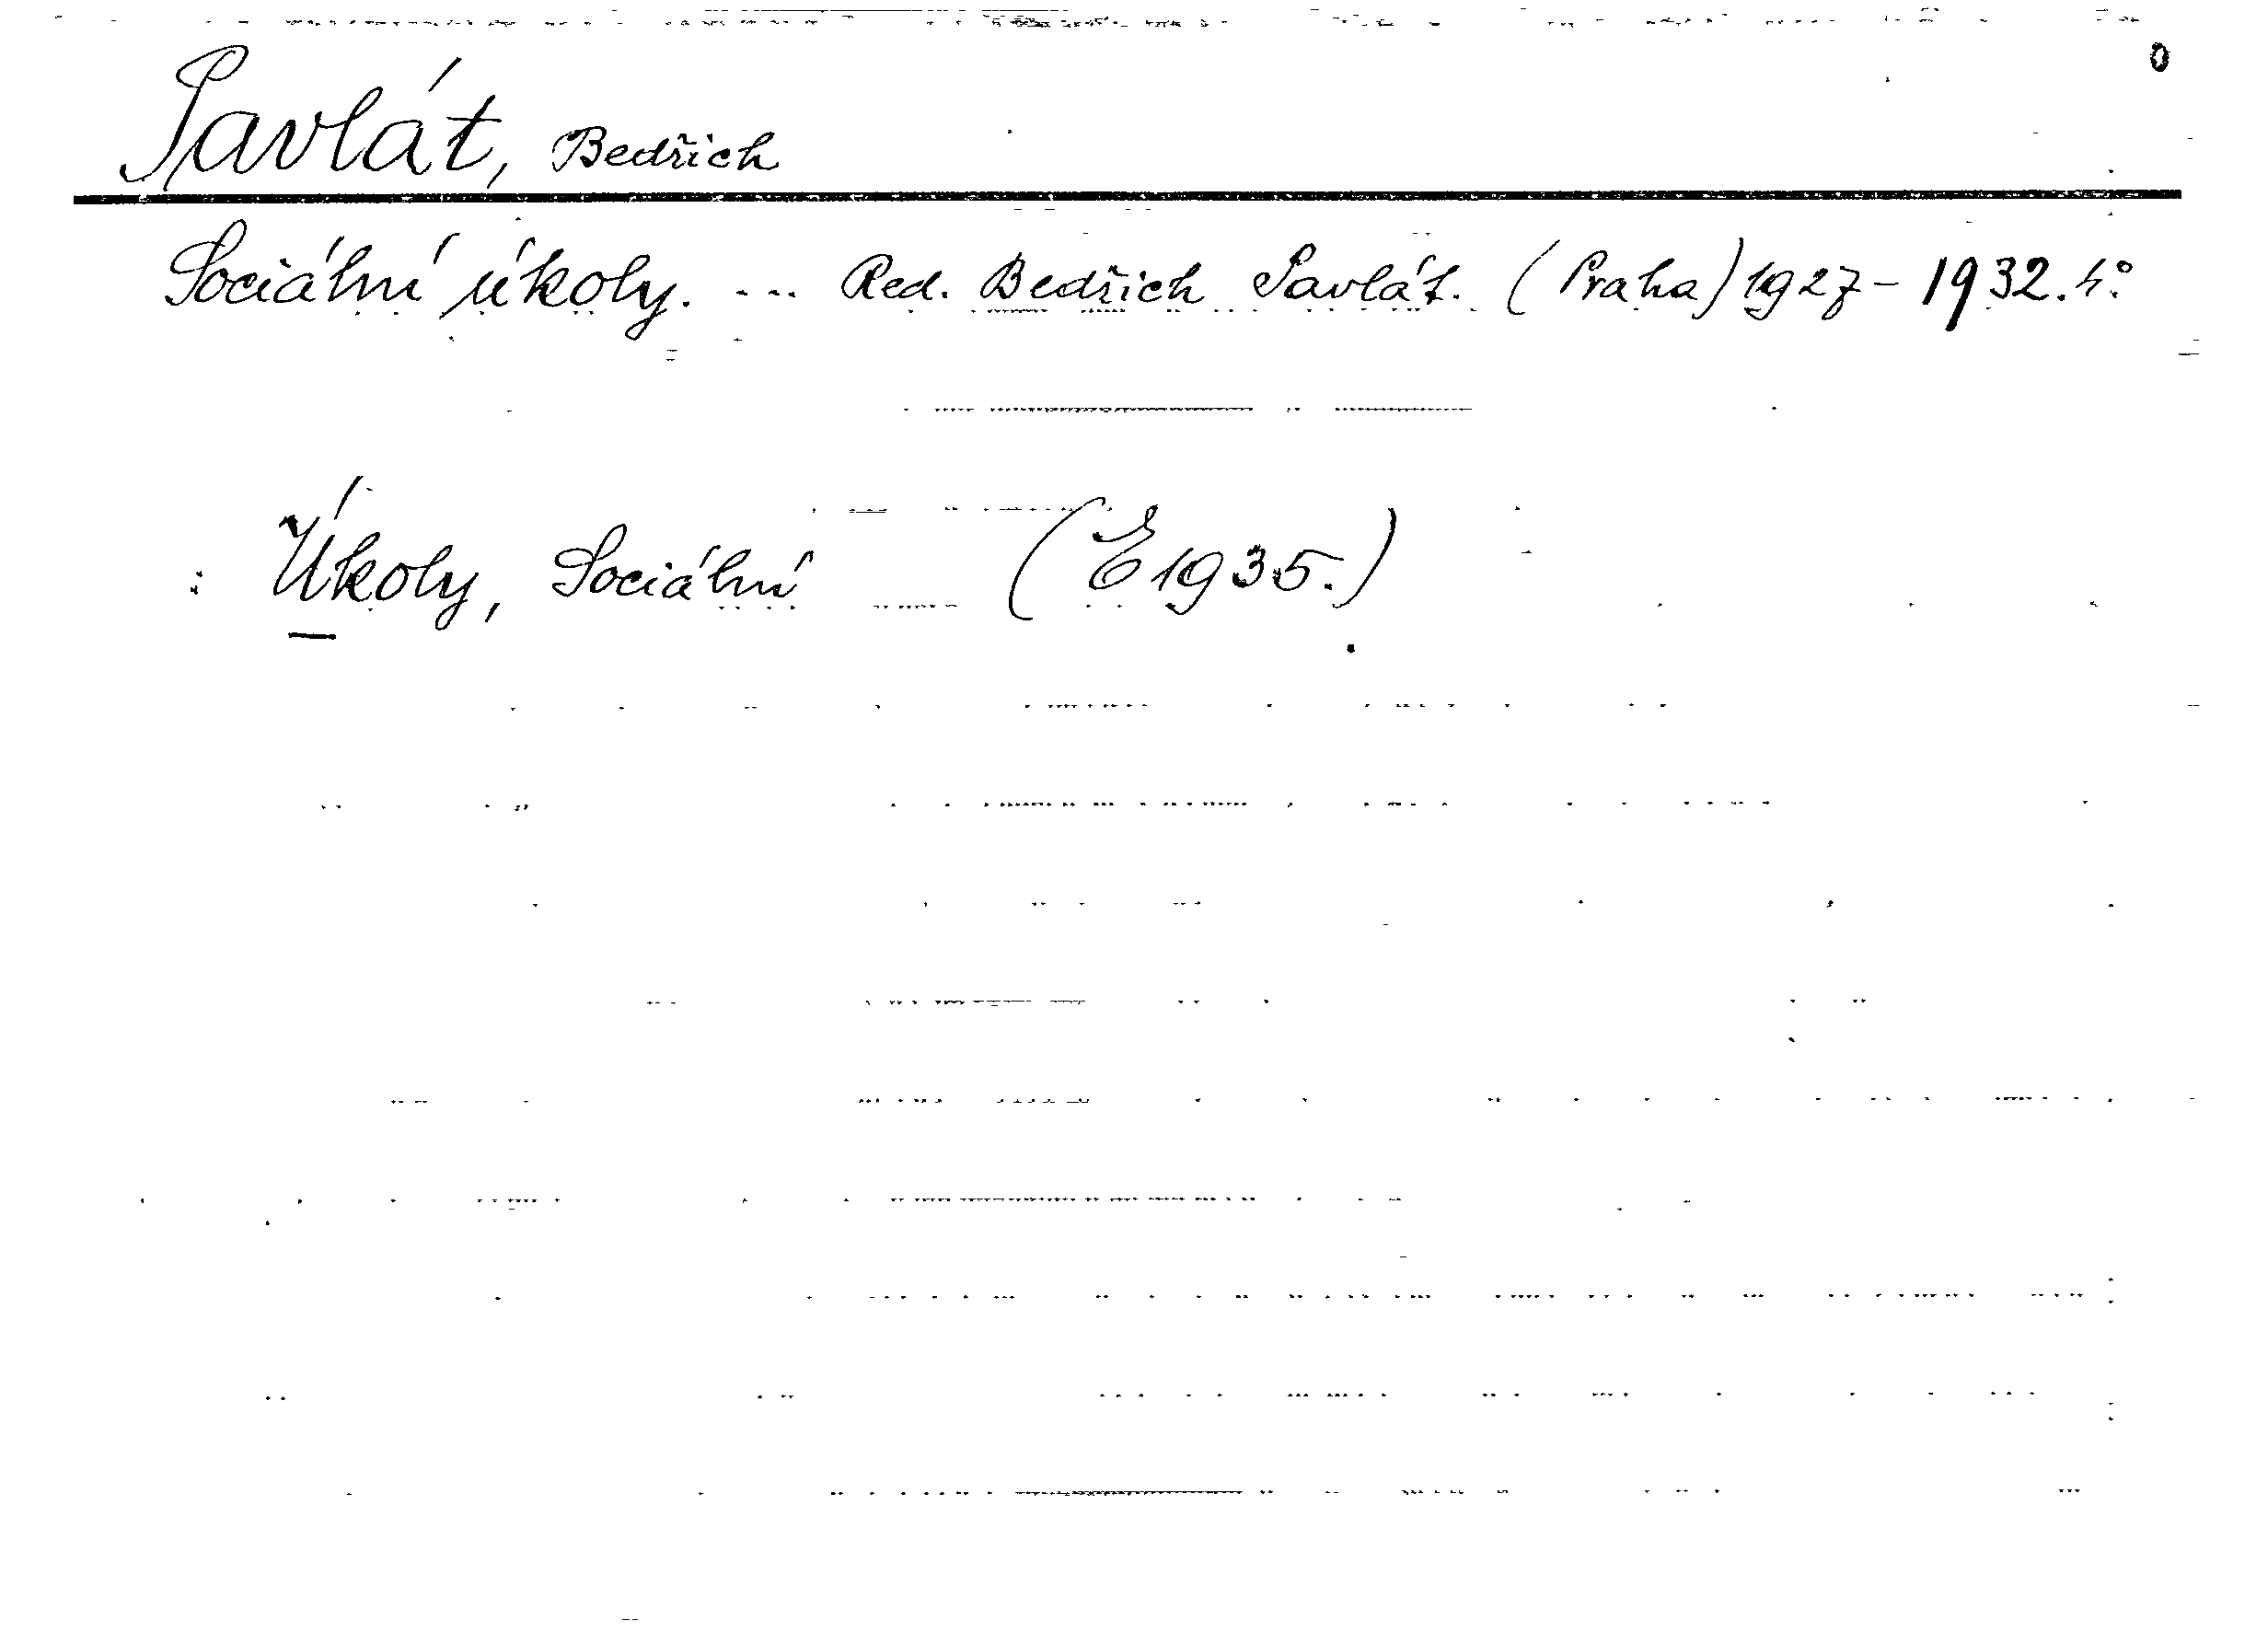 Pavlát, Bedřich
Sociální úkoly. ... Red. Bedřich Pavlát. (Praha) 1927-1932. 4°.
: Úkoly, Sociální (E 1935.)